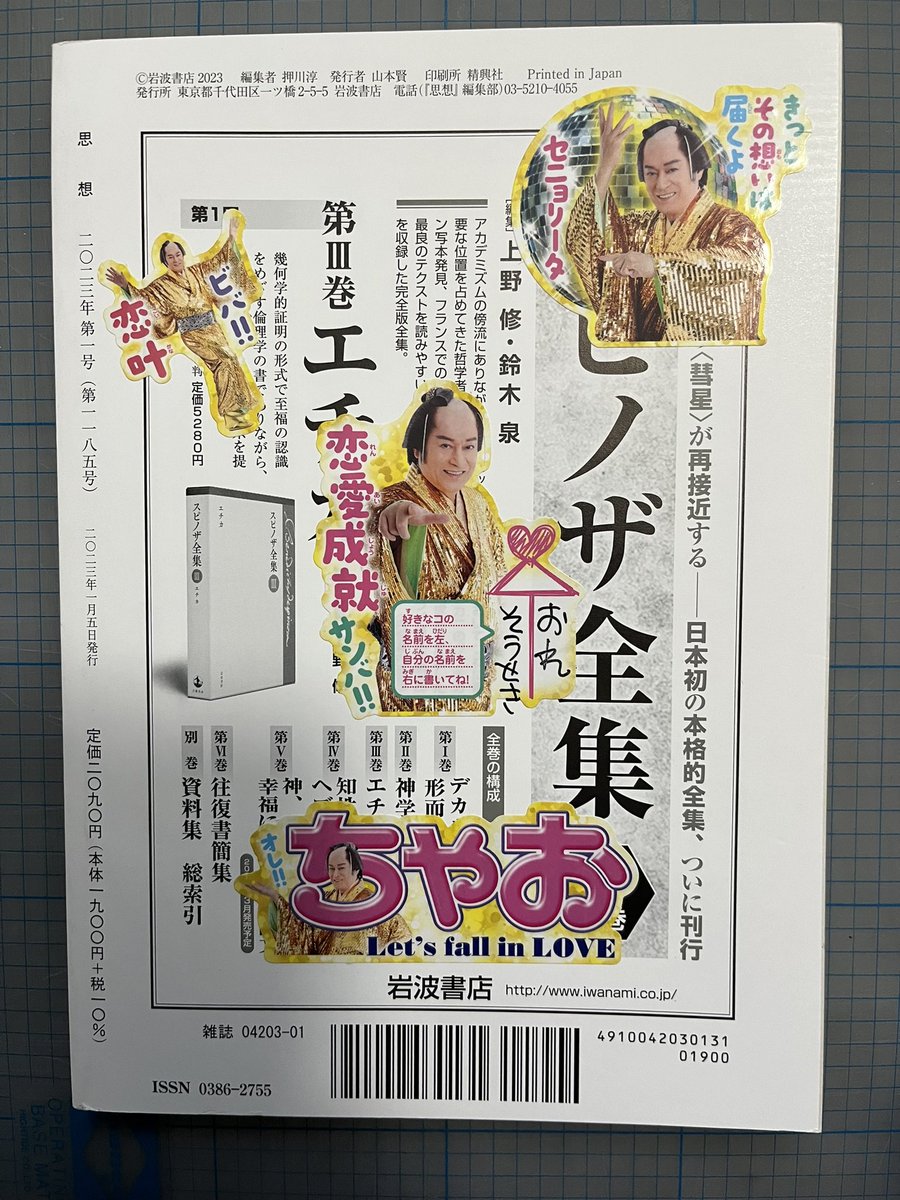 ©岩波書店 2023　編集者 押川淳　発行者 山本賢　印刷所 精興社　Printed in Japan
発行所 東京都千代田区一ツ橋2-5-5 岩波書店　電話(『思想』編集部)03-5210-4055
きっと
その想いは
届くよ
セニョリータ
〈彗星〉が再接近する――日本初の本格的全集、ついに刊行
ピノザ全集
[編集]上野 修・鈴木 泉
アカデミズムの傍流にありなが
要な位置を占めてきた哲学者
ン写本発見、フランスでの
最良のテクストを読みやすい
を収録した完全版全集。
第1回
第Ⅲ巻 エチ
幾何学的証明の形式で至福の認識
をめざす倫理学の書でありながら、
を提
判 定価5280円
ビバ!!
恋叶
恋愛成就
れんあいじょうじゅ
サンバ!!
好きなコの
名前を左、
自分の名前を
右に書いてね!
おれ
そうせき
スピノザ全集 Ⅲ
エチカ
スピノザ全集 Ⅲ エチカ
全巻の構成
第Ⅰ巻
形而
デカ
第Ⅱ巻
神学
第Ⅲ巻
エチ
第Ⅳ巻
知性
ヘブ
第Ⅴ巻
神、
幸福に
第Ⅵ巻 往復書簡集
別巻 資料集 総索引
3月発売予定
巻
オレ!!
ちゃお
Let's fall in LOVE
岩波書店 http://www.iwanami.co.jp/
雑誌 04203-01
4910042030131
01900
ISSN 0386-2755
思想 二〇二三年第一号(第一一八五号) 二〇二三年一月五日発行 定価二〇九〇円(本体一九〇〇円+税一〇%)